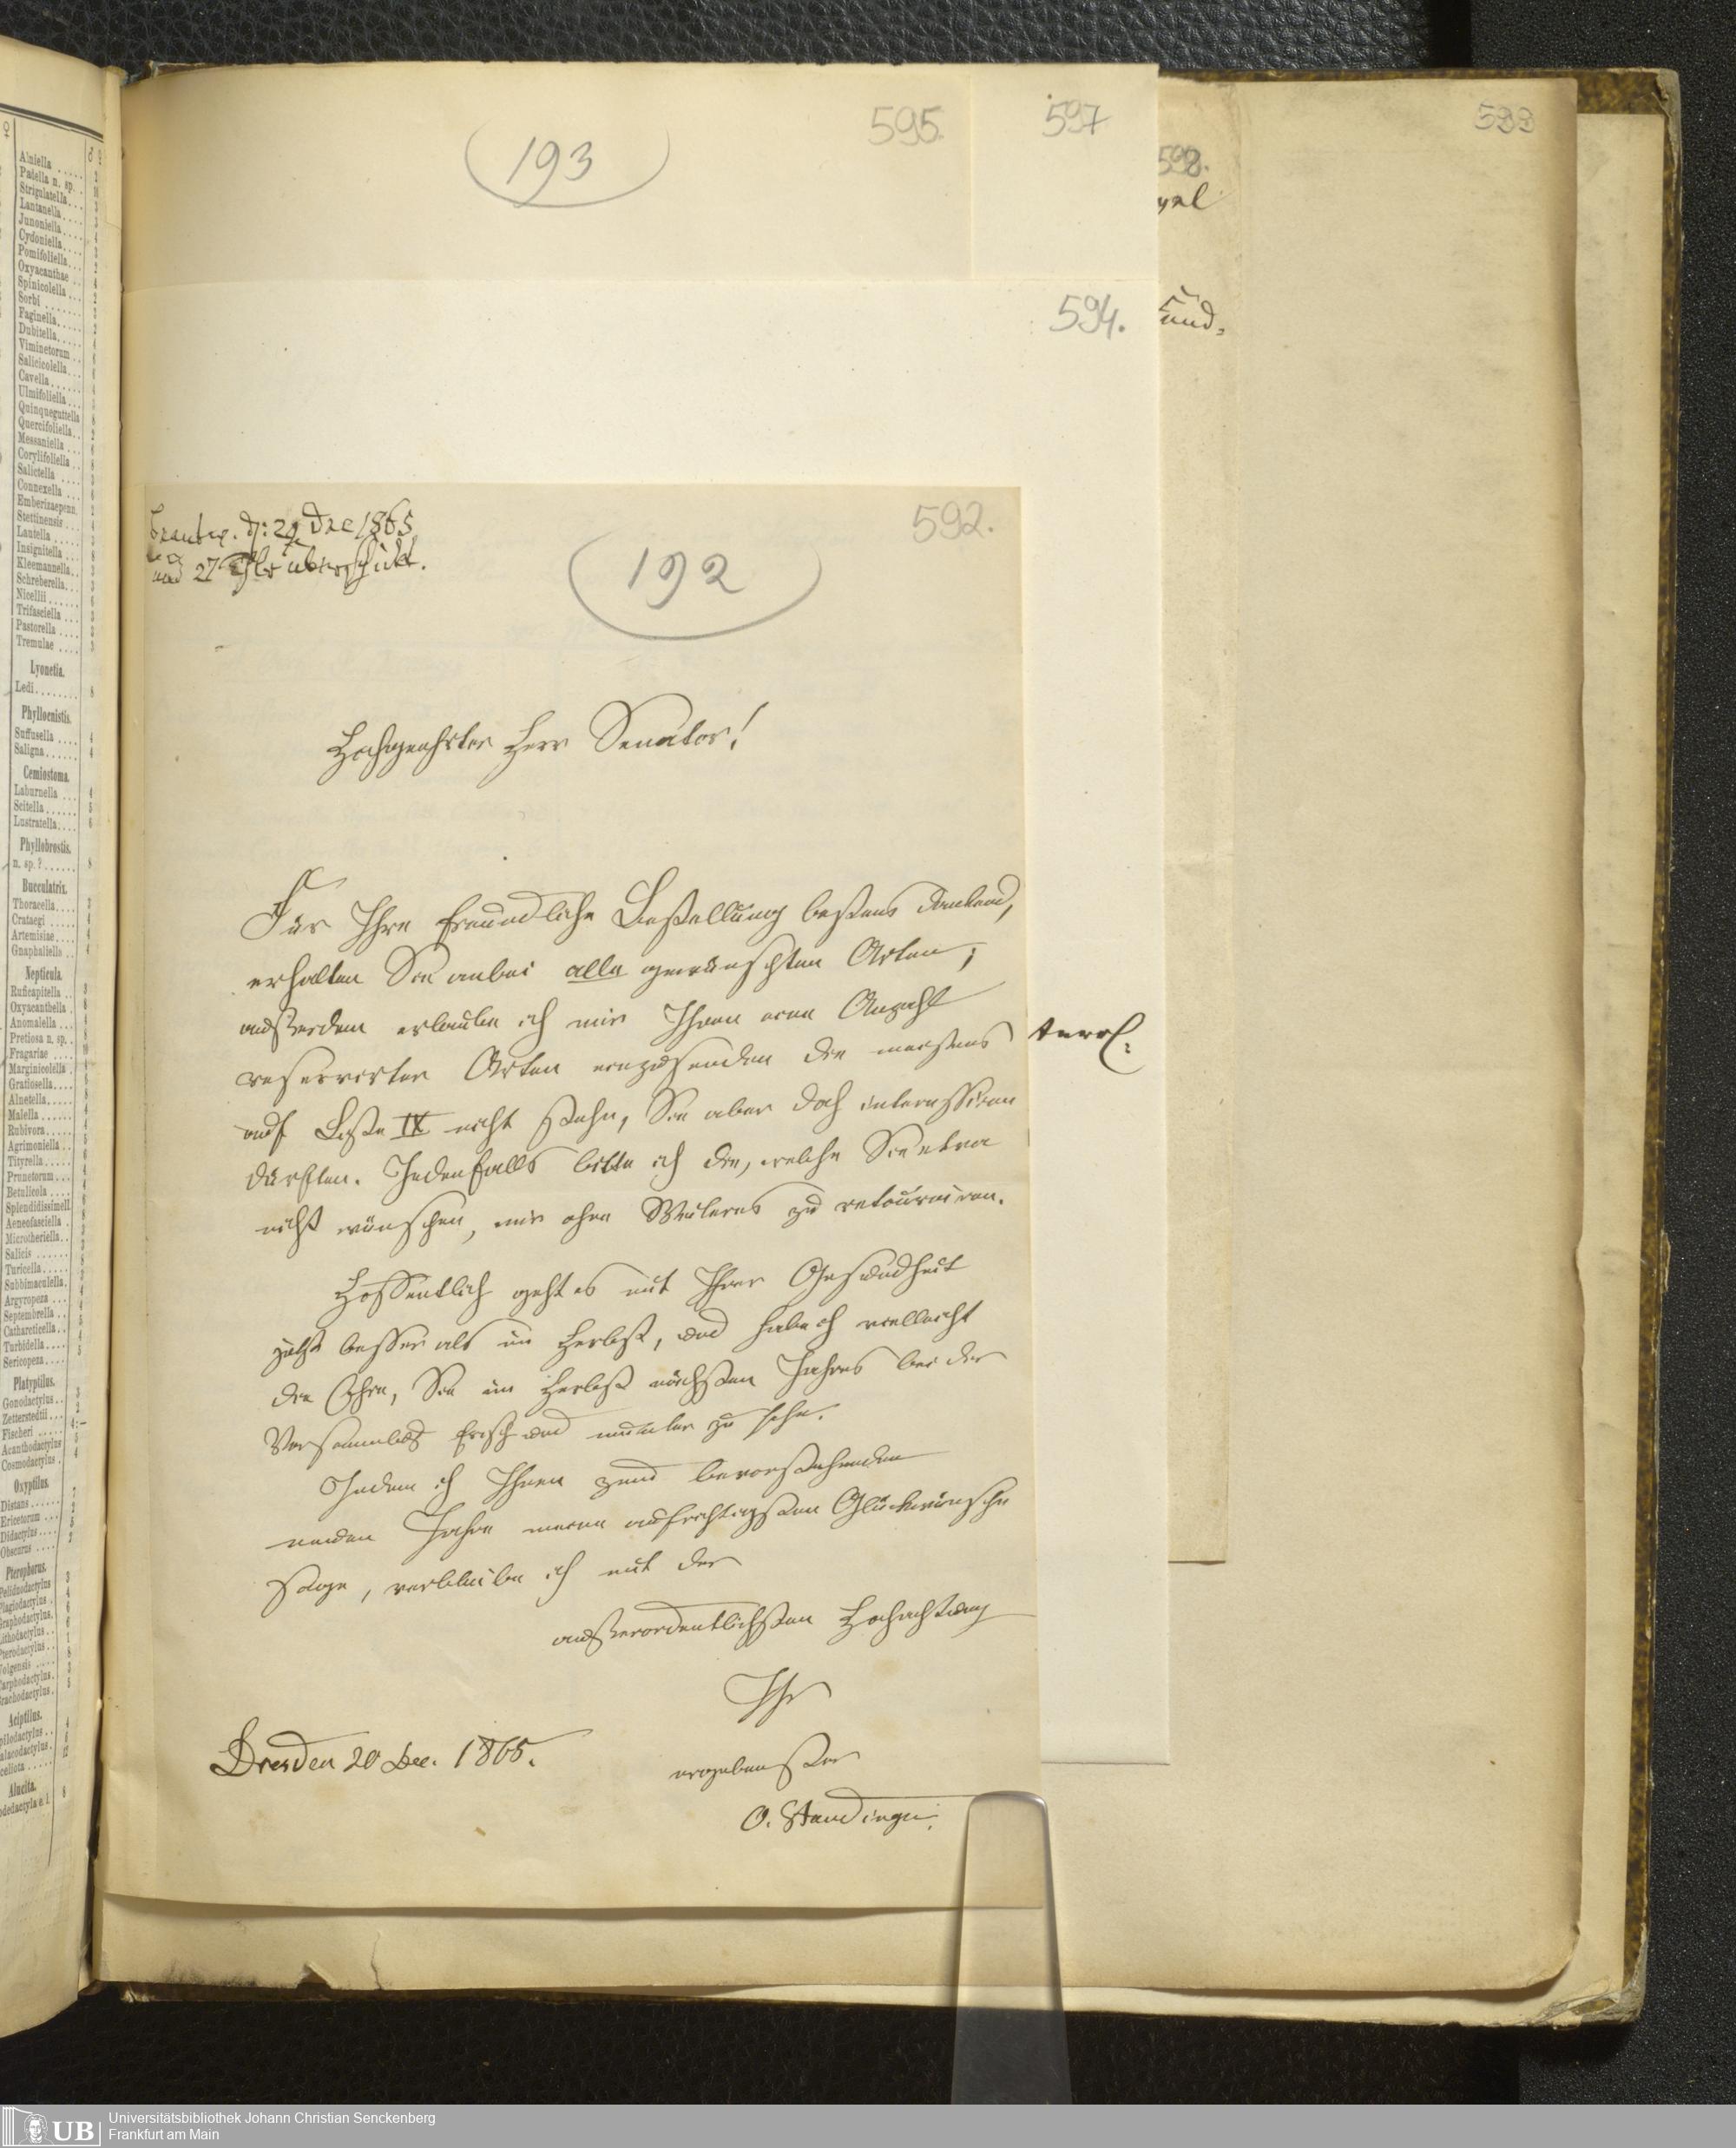 ♀
♂ ♀
Alniella
Padella n. sp.
Strigulatella
Lantanella
Junoniella
Cydoniella
Pomifoliella
Oxyacanthae
Spinicolella
Sorbi
Faginella
Dubitella
Viminetorum
Salicicolella
Cavella
Ulmifoliella
Quinqueguttella
Quercifoliella
Messaniella
Corylifoliella
Salictella
Connexella
Emberizaepenn.
Stettinensis
Lautella
Insignitella
Kleemannella
Schreberella
Nicellii
Trifasciella
Pastorella
Tremulae
Lyonetia.
Ledi 8
Phyllocnistis.
Suffusella 4
Saligna 4
Cemiostoma.
Laburnella 4
Scitella 5
Lustratella 6
Phyllobrostis.
n. sp.? 8
Bucculatrix.
Thoracella 3
Crataegi 4
Artemisiae 4
Gnaphaliella 4
Nepticula.
Ruficapitella
Oxyacanthella
Anomalella
Pretiosa n. sp.
Fragariae
Marginicolella
Gratiosella
Alnetella
Malella
Rubivora
Agrimoniella
Tityrella
Prunetorum
Betulicola
Splendidissimell.
Aeneofasciella
Microtheriella
Salicis
Turicella
Subbimaculella
Argyropeza
Septembrella
Catharticella
Turbidella
Sericopeza
Platyptilus.
Gonodactylus
Zetterstedtii
Fischeri
Acanthodactylus
Cosmodactylus
Oxyptilus.
Distans
Ericetorum
Didactylus
Obscurus
Pterophorus.
Aciptilus.
Alucita.
193
595.
597
598.
599
594.
und
592.
192
d: 29 Dec 1865
und 27 Thlr überschickt.
Hochgeehrter Herr Senator!
Für Ihre freundliche Bestellung bestens dankend,
erhalten Sie anbei alle gewünschten Arten;
außerdem erlaube ich mir Ihnen eine Anzahl
reservirter Arten einzusenden die meistens
auf Liste IX nicht stehn, Sie aber doch interessiren
dürften. Jedenfalls bitte ich die, welche Sie etwa
nicht wünschen, mir ohne Weiteres zu retourniren.
Hoffentlich geht es mit Ihrer Gesundheit
jetzt besser als im Herbst, und habe ich vielleicht
die Ehre, Sie im Herbst nächsten Jahres bei der
Versammlung frisch und munter zu sehn.
Indem ich Ihnen zum bevorstehenden
neuen Jahre meine aufrichtigsten Glückwünsche
sage, verbleibe ich mit der
außerordentlichsten Hochachtung
Ihr
ergebenster
Dresden 20 Dec. 1865.
O. Staudinger.
UB
Universitätsbibliothek Johann Christian Senckenberg
Frankfurt am Main